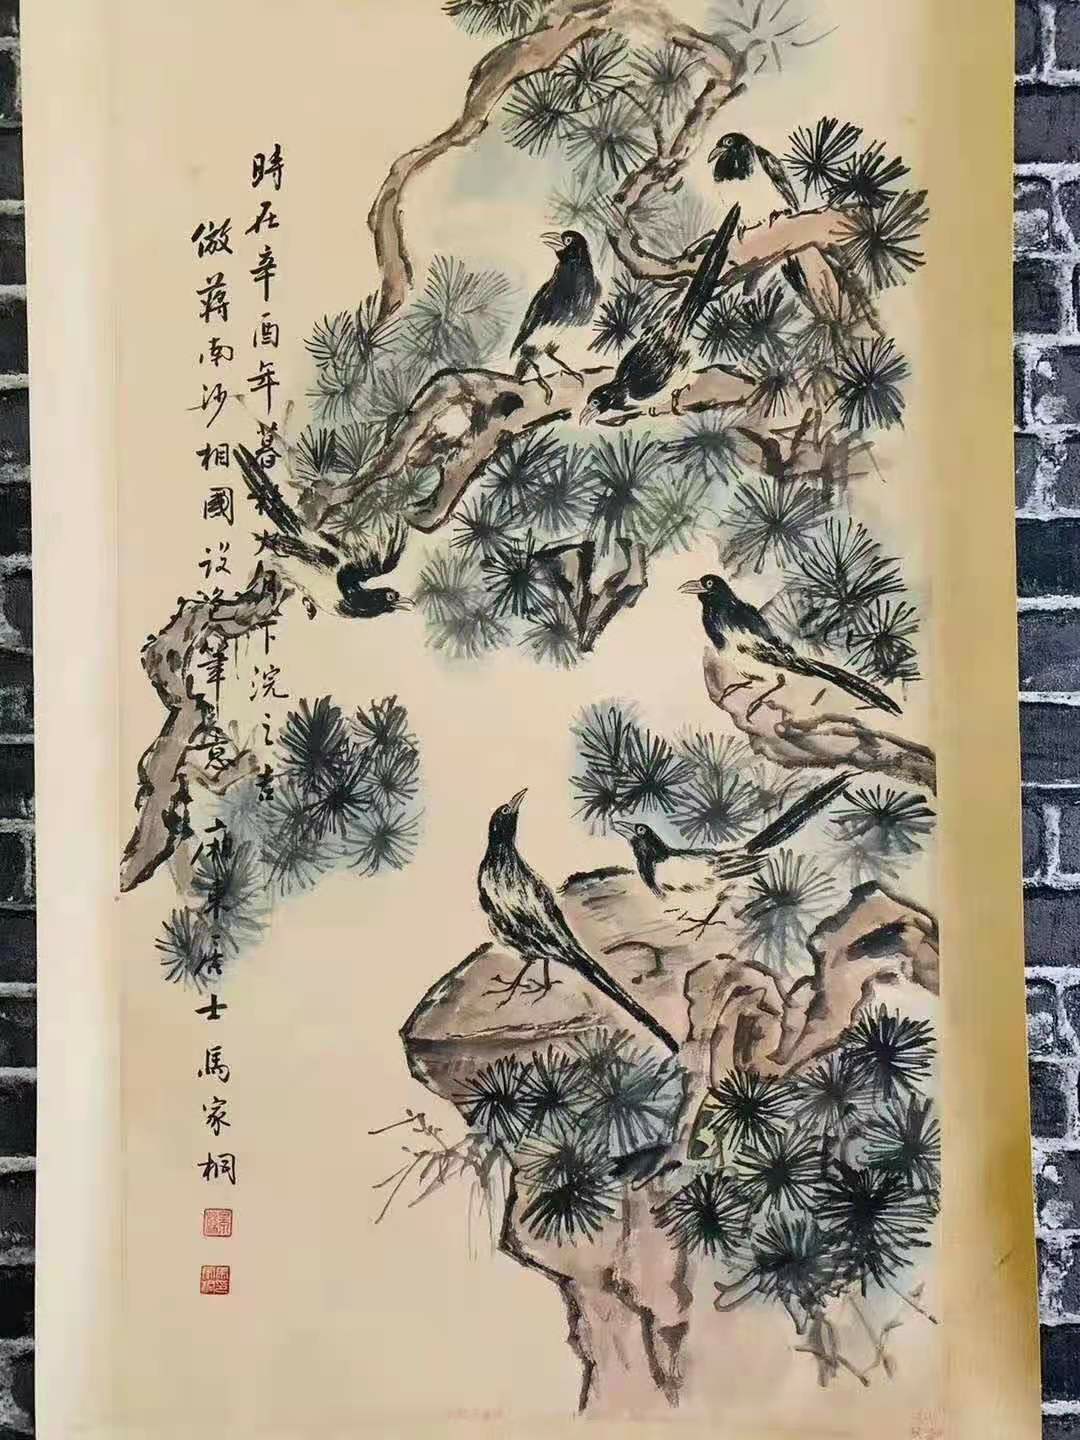 時在辛酉年暮秋火月下浣之吉
倣蔣南沙相國设色筆意廂東居士馬家桐